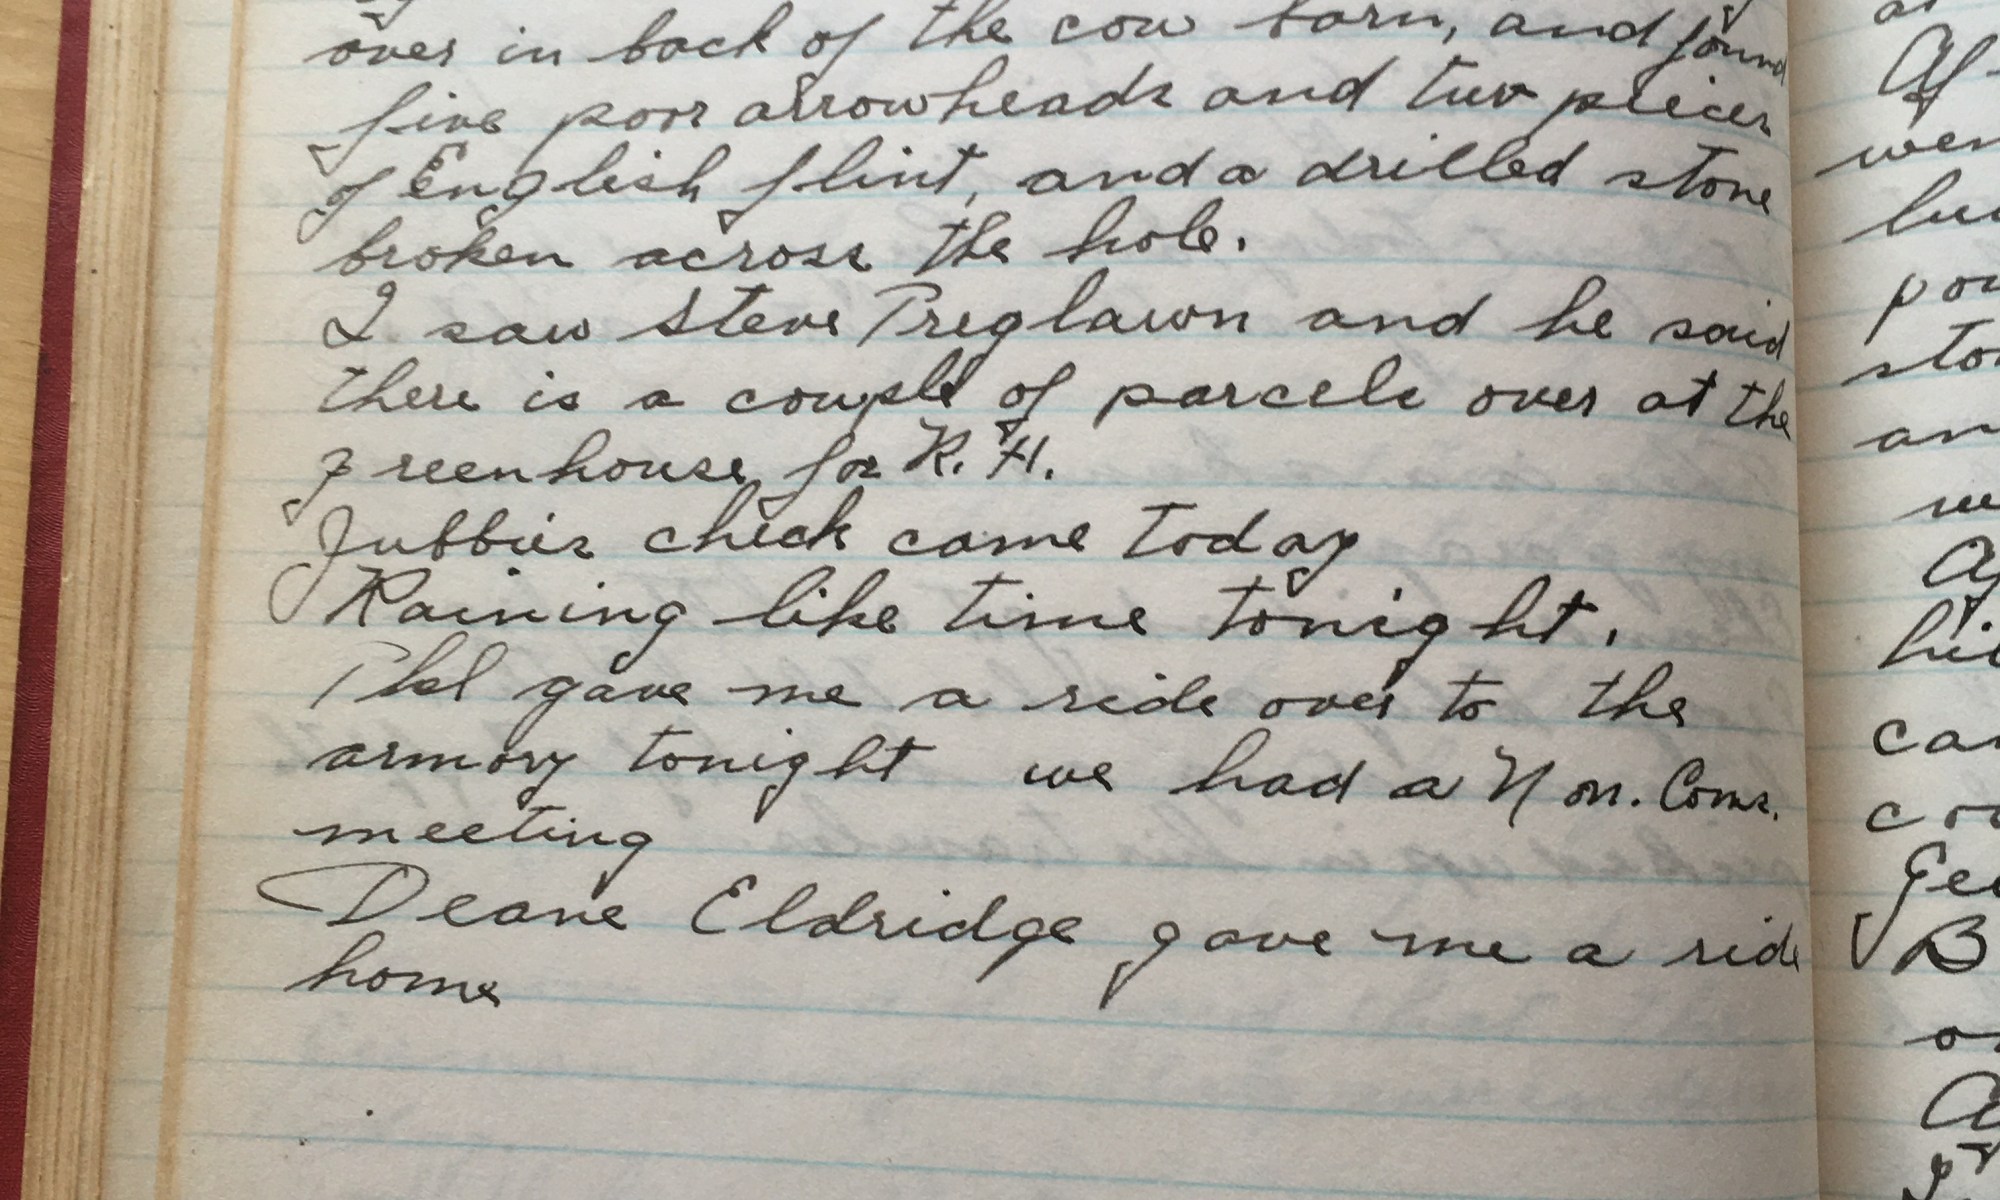 over in back of the cow barn, and found
five poor arrowheads and two pieces
of English flint, and a drilled stone
broken across the hole.
I saw Steve Preglawn and he said
there is a couple of parcels over at the
greenhouse for R. H.
Jubbies check came today
Raining like time tonight.
Phil gave me a ride over to the
armory tonight we had a Non. Coms.
meeting
Deane Eldridge gave me a ride
home